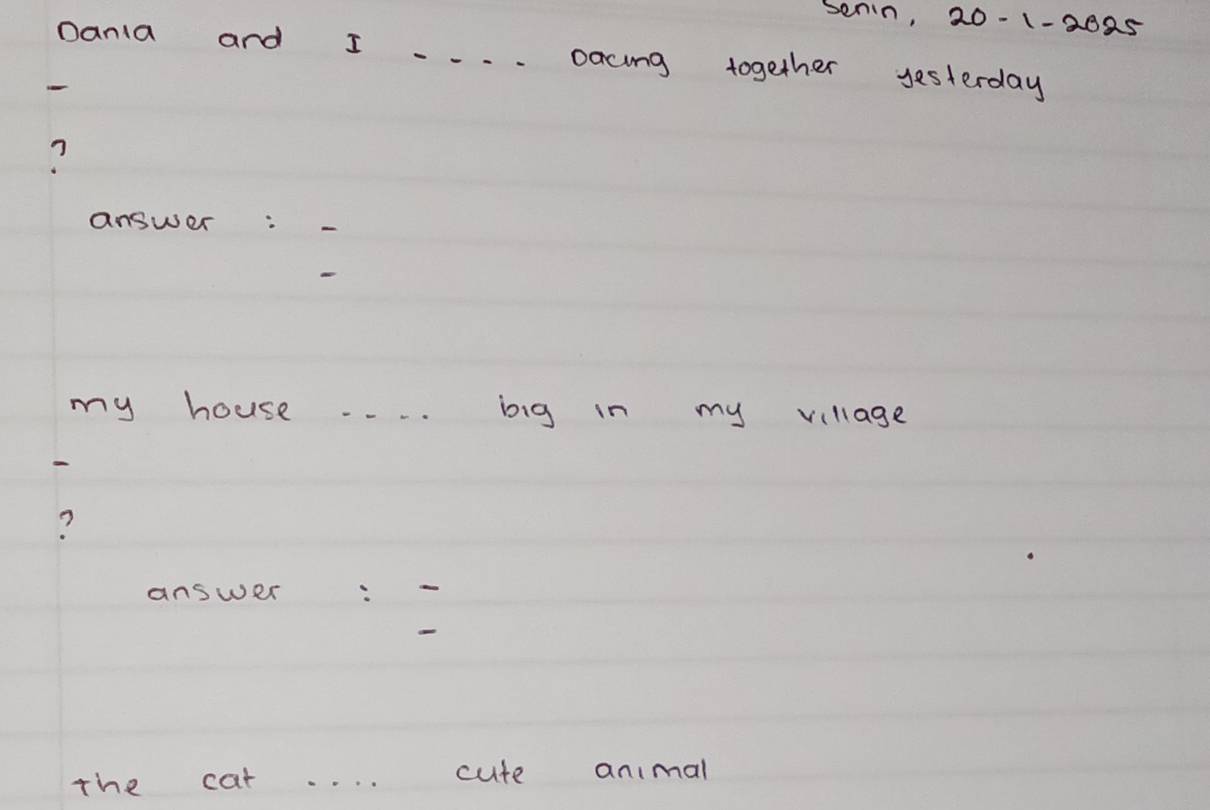 Senin, 20-1-2025
Dania and I .... Dacing together yesterday
-
?
answer : -
-
my house .... big in my village
-
?
answer : -
-
The cat .... cute animal